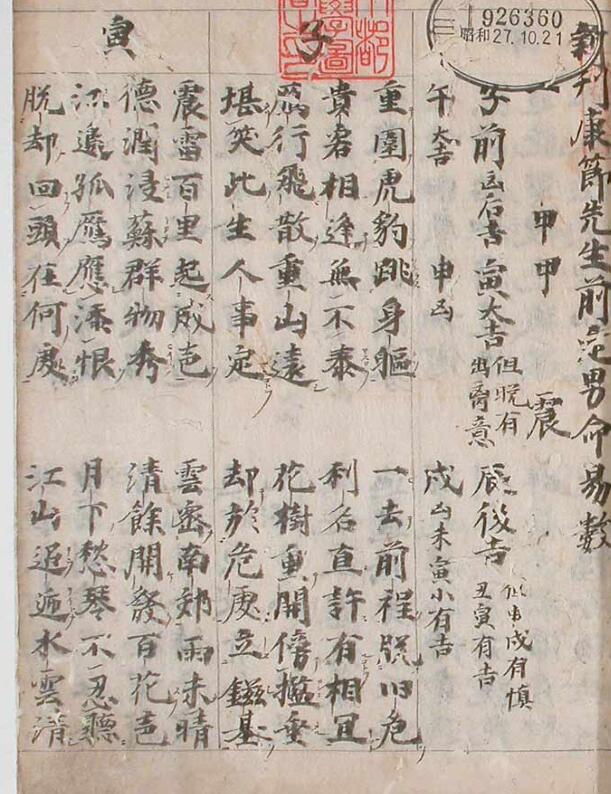 新刊康節先生前定男命易数
一 甲甲 震
子前凶后吉 寅大吉 但晩有
出喬意
辰後吉 丑寅有吉
但申戌有慎
午大吉 申凶 戌凶未寅小有吉
子
重圍虎豹跳身軀 一去前程脱旧危
貴君相逢無不泰 利名直許有相宜
鴈行飛散重山遠 花樹重開傍檻垂
堪笑此生人事定 却於危處立鎡基
寅
震雷百里起成色 雲密南郊雨未晴
德潤浸蘇群物秀 清餘開發百花色
江邊孤鴈應添恨 月下愁琴不忍聽
脱却回頭在何處 江山迢逓水雲清
926360
昭和27.10.21